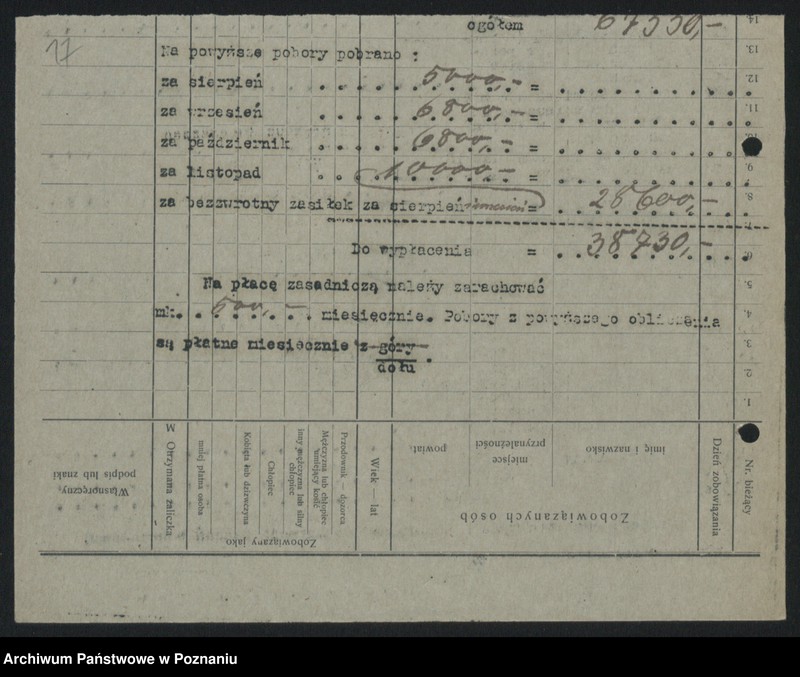 ogółem 67330,-
17
Na powyższe pobory pobrano :
za sierpień . . . . . 5000,- =
za wrzesień . . . . . 6800,- =
za październik . . . . 6800,- =
za listopad . . . 10000,- =
za bezzwrotny zasiłek za sierpień = 28600,-
Do wypłacenia = 38730,-
Na płacę zasadniczą należy zarachować
mk. 500,- . miesięcznie. Pobory z powyższego obliczenia
są płatne miesiecznie z góry
dołu .
14
13.
12.
11.
9.
8.
7.
6.
5.
4.
3.
2.
1.
Nr. bieżący
Dzień zobowiązania
Zobowiązanych osób
imię i nazwisko
miejsce przynależności
powiat
Wiek — lat
Zobowiązany jako
Przodownik — dozorca
Mężczyzna lub chłopiec umiejący kosić
inny mężczyzna lub silny chłopiec
Chłopiec
Kobieta lub dziewczyna
mniej płatna osoba
M Otrzymana zaliczka
Własnoręczny podpis lub znaki
Archiwum Państwowe w Poznaniu